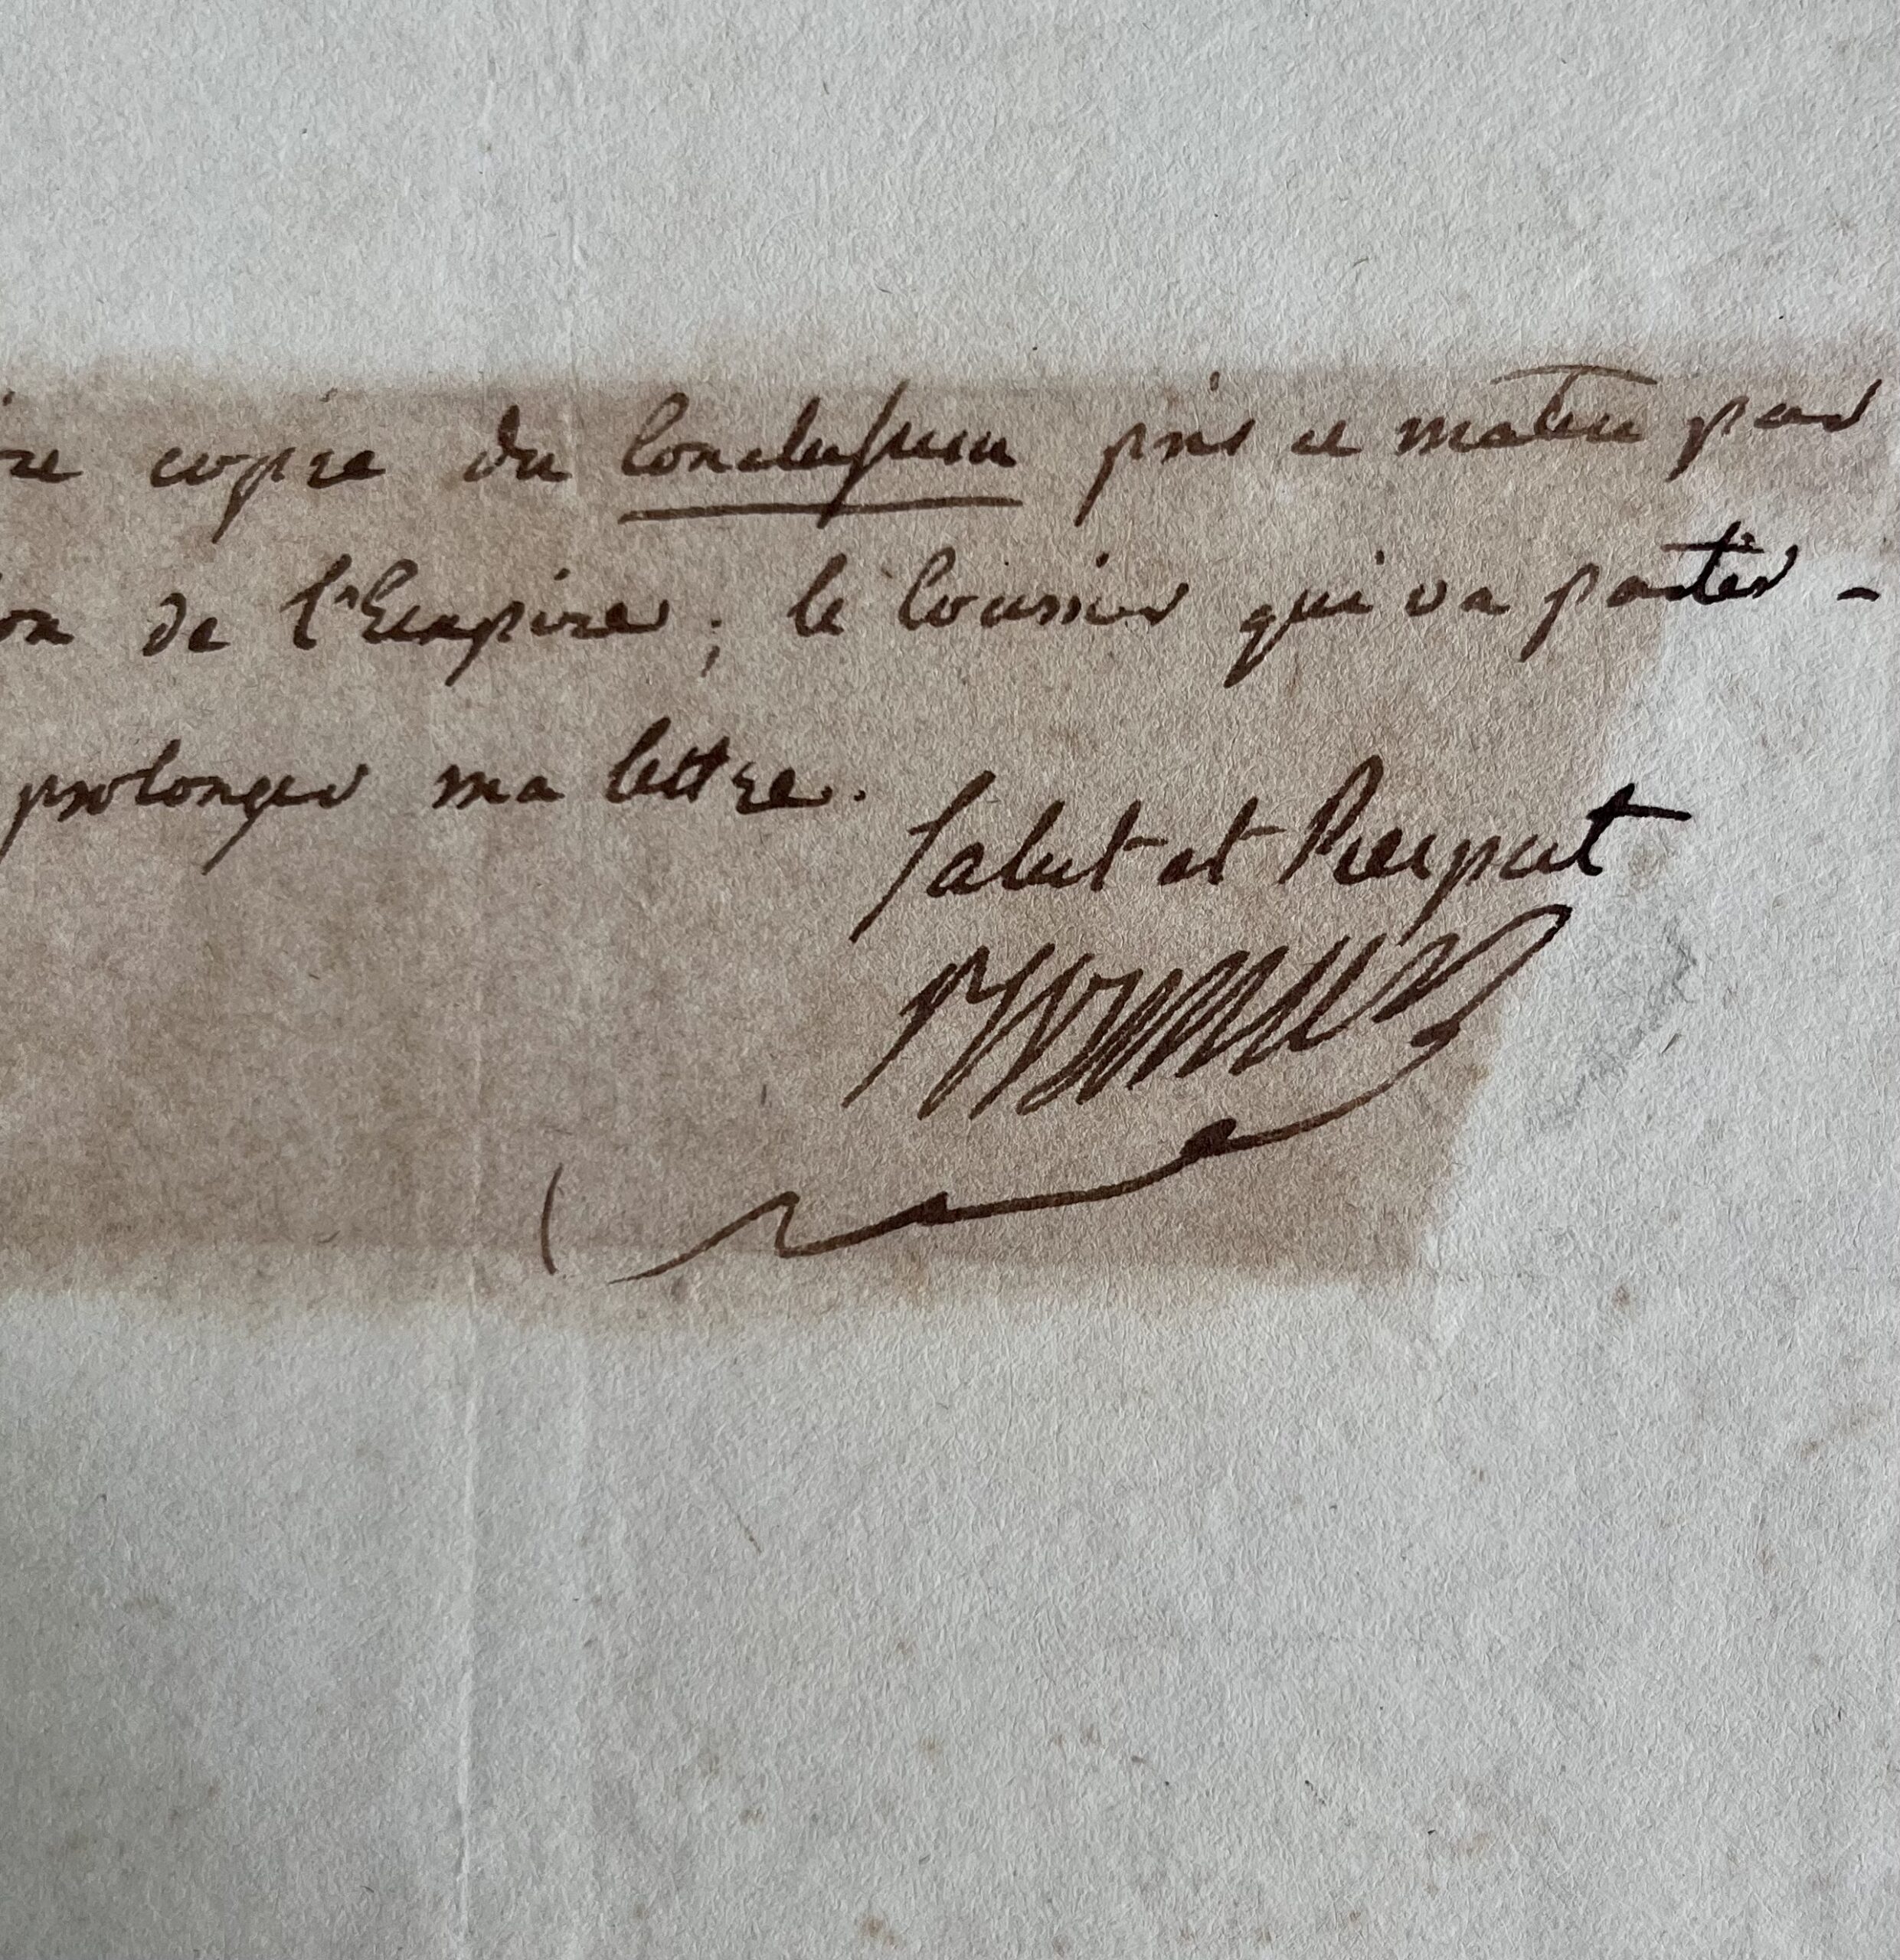 copie du Conclusum pris ce matin par
de l'Empire ; le Courrier qui va partir -
prolonger ma lettre.
Salut et Respect